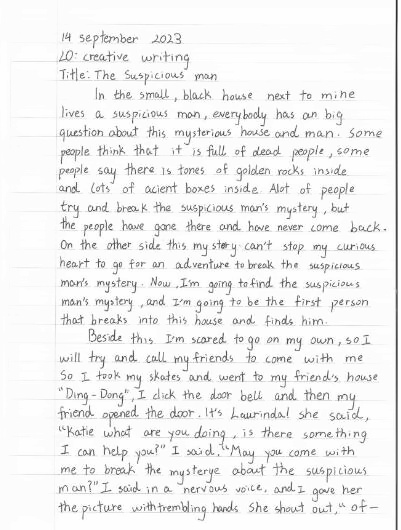 14 september 2023
LO: creative writing
Title: The Suspicious man
In the small, black house next to mine
lives a suspicious man, everybody has an big
question about this mysterious house and man. Some
people think that it is full of dead people, some
people say there is tones of golden rocks inside
and lots of acient boxes inside. Alot of people
try and break the suspicious man's mystery, but
the people have gone there and have never come back.
On the other side this mystery can't stop my curious
heart to go for an adventure to break the suspicious
man's mystery. Now, I'm going to find the suspicious
man's mystery, and I'm going to be the first person
that breaks into this house and finds him.
Beside this I'm scared to go on my own, so I
will try and call my friends to come with me
So I took my skates and went to my friend's house
"Ding-Dong", I click the door bell and then my
friend opened the door. It's Laurinda! she said,
"Katie what are you doing, is there something
I can help you?" I said, "May you come with
me to break the mysterye about the suspicious
man?" I said in a nervous voice, and I gave her
the picture with trembling hands. She shout out, " of-